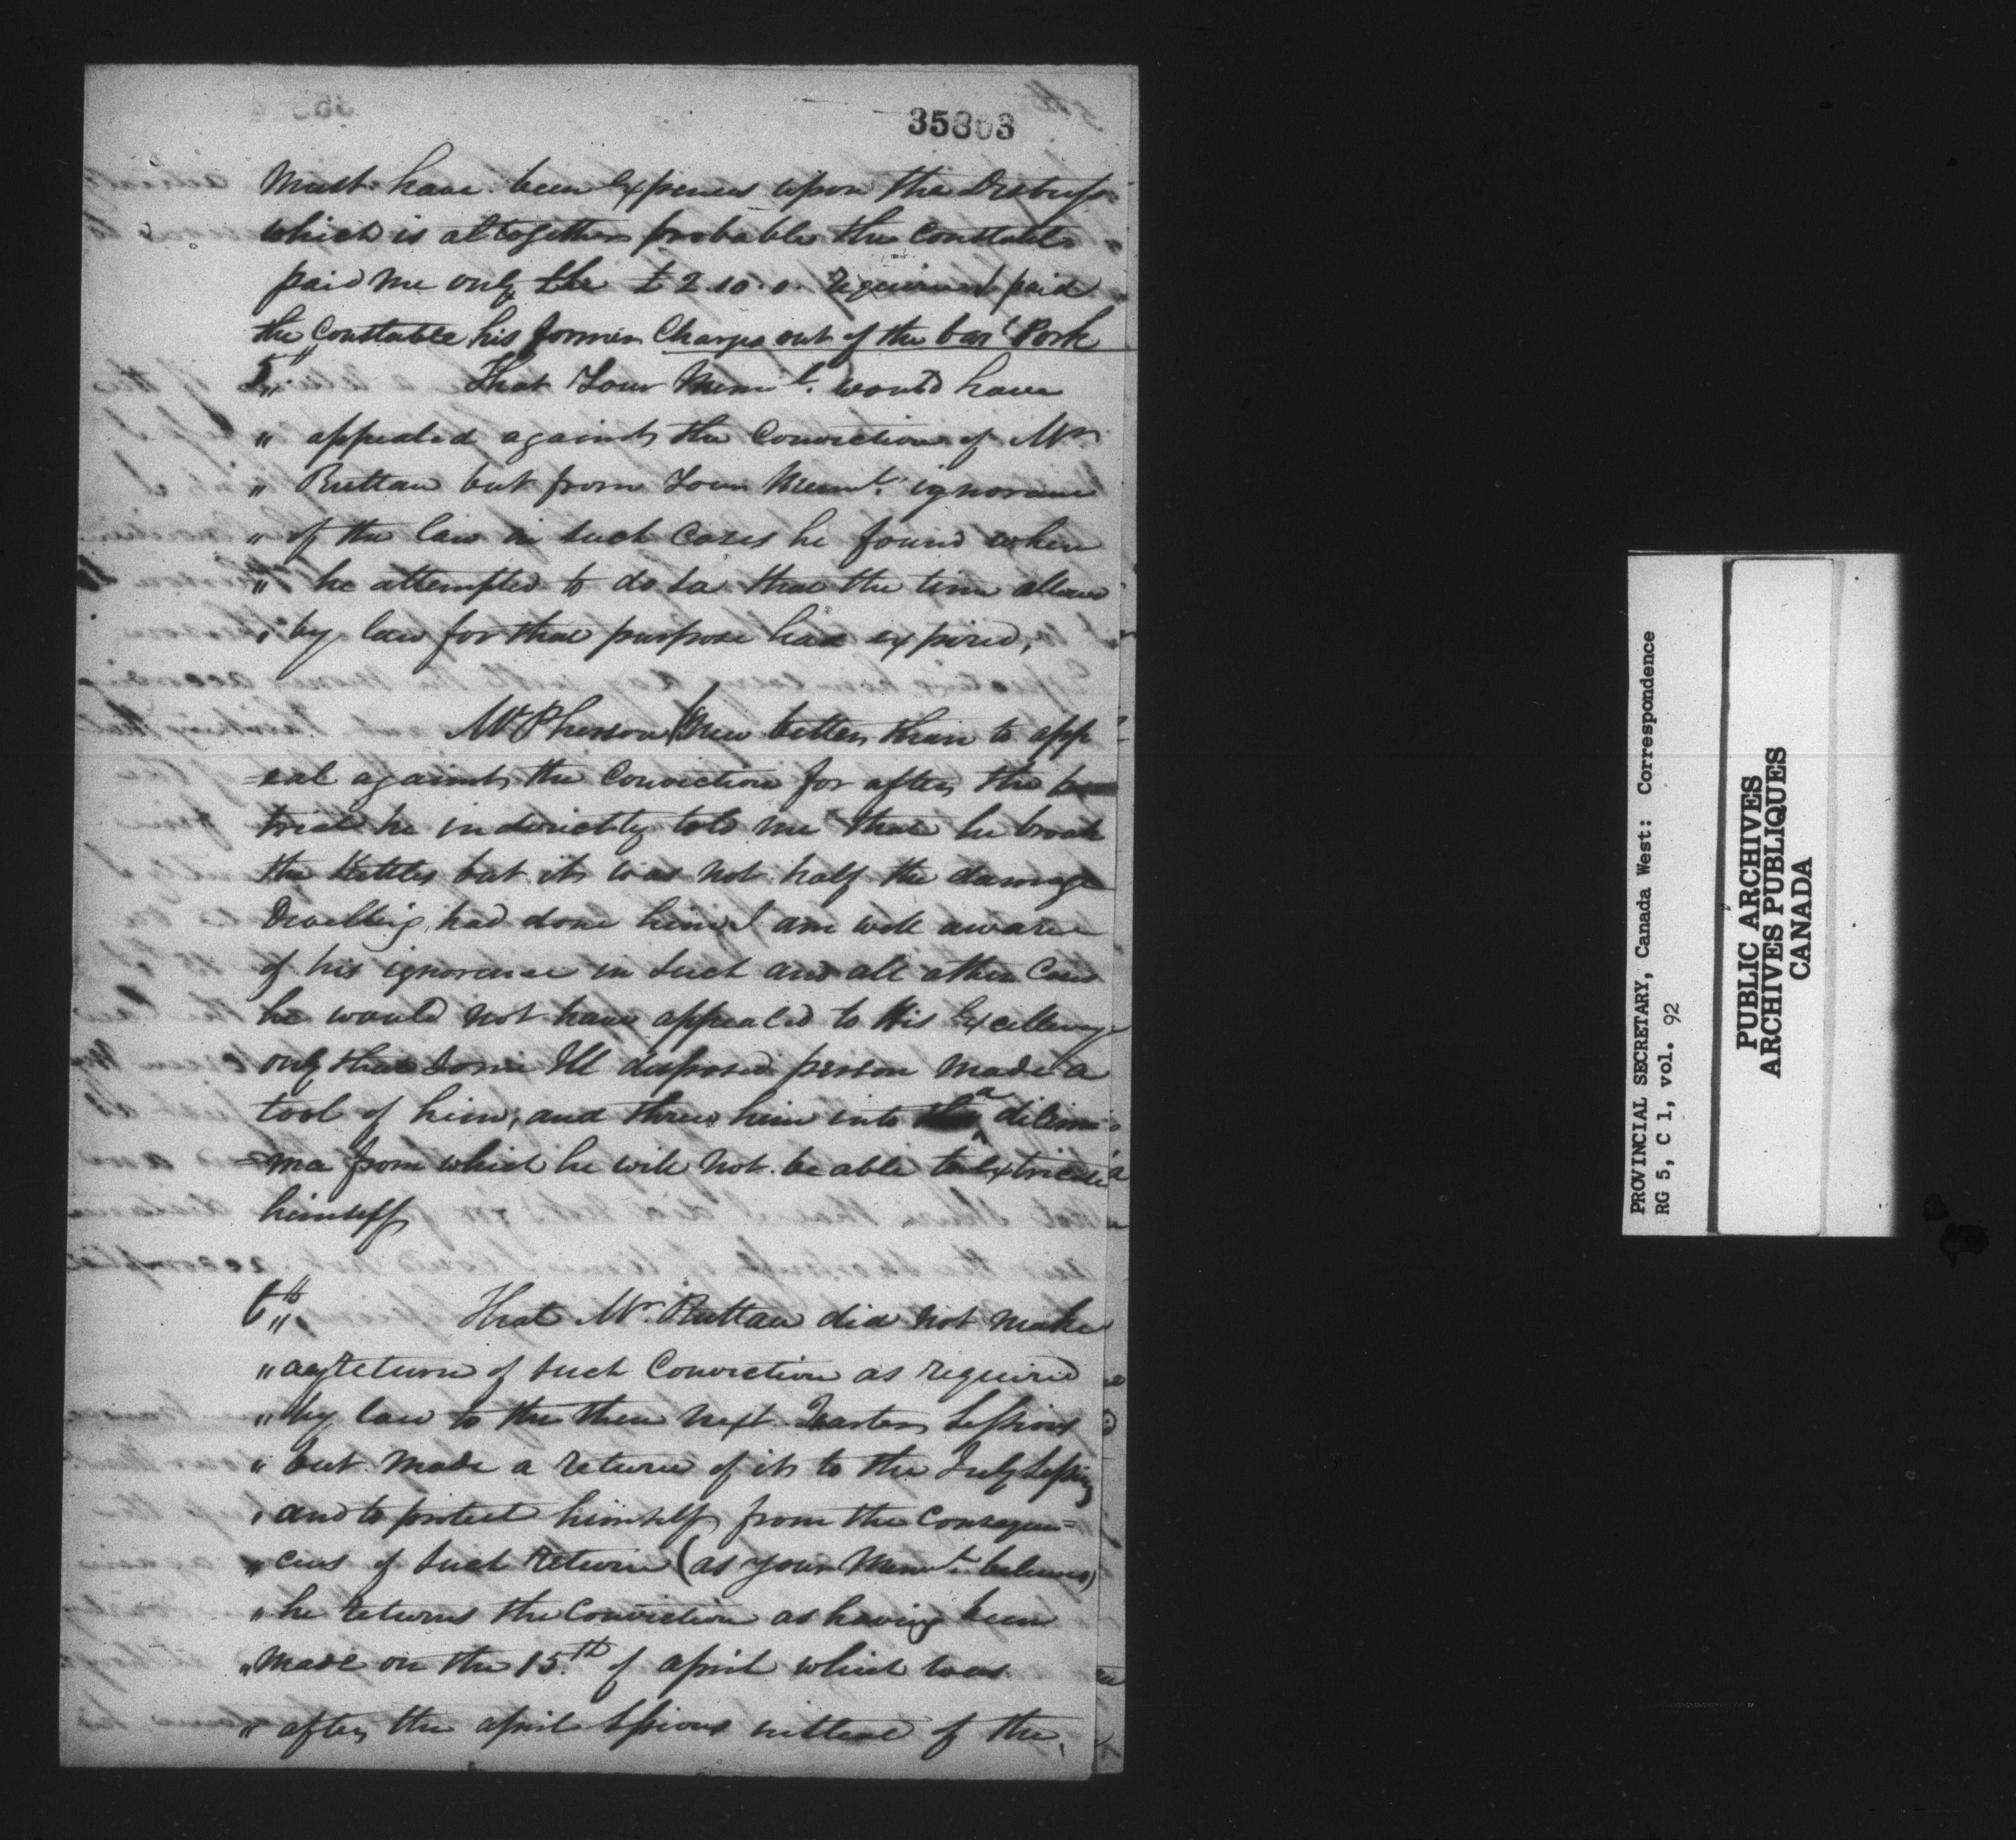 35803
Must have been Expences upon the Distress
which is altogether probable the Constable
paid me only the £2.10.0. required paid
the Constable his former Charges out of the barl Pork
5th That Your Memlt. would have
" appealed against the Conviction of Mr
" Ruttan but from Your Memlt. ignorance
" of the law in such Cases he found when
" he attempted to do so that the time allowed
" by law for that purpose had expired,
McPherson knew better than to app
=eal against the Conviction for after the
trial he indirectly told me that he broak
the Kettles but it was not half the damage
had done him I am well aware
of his ignorance in such and all other Cases
he would not have appealed to His Excellency
only that some Ill disposed person made a
tool of him, and threw him into a dilem=
=ma from which he will not be able to Extricate
himself
6th That Mr. Ruttan did not make
" any return of such Conviction as required
" by law to the then next Quarter Sessions
" but made a return of it to the July Sessions
" and to protect himself from the Consequen=
" ces of such return (as your Memlt. believes)
" he returns the Conviction as having been
" made on the 15th of april which was
" after the april Sessions instead of the
PROVINCIAL SECRETARY, Canada West: Correspondence
RG 5, C 1, vol. 92
PUBLIC ARCHIVES
ARCHIVES PUBLIQUES
CANADA